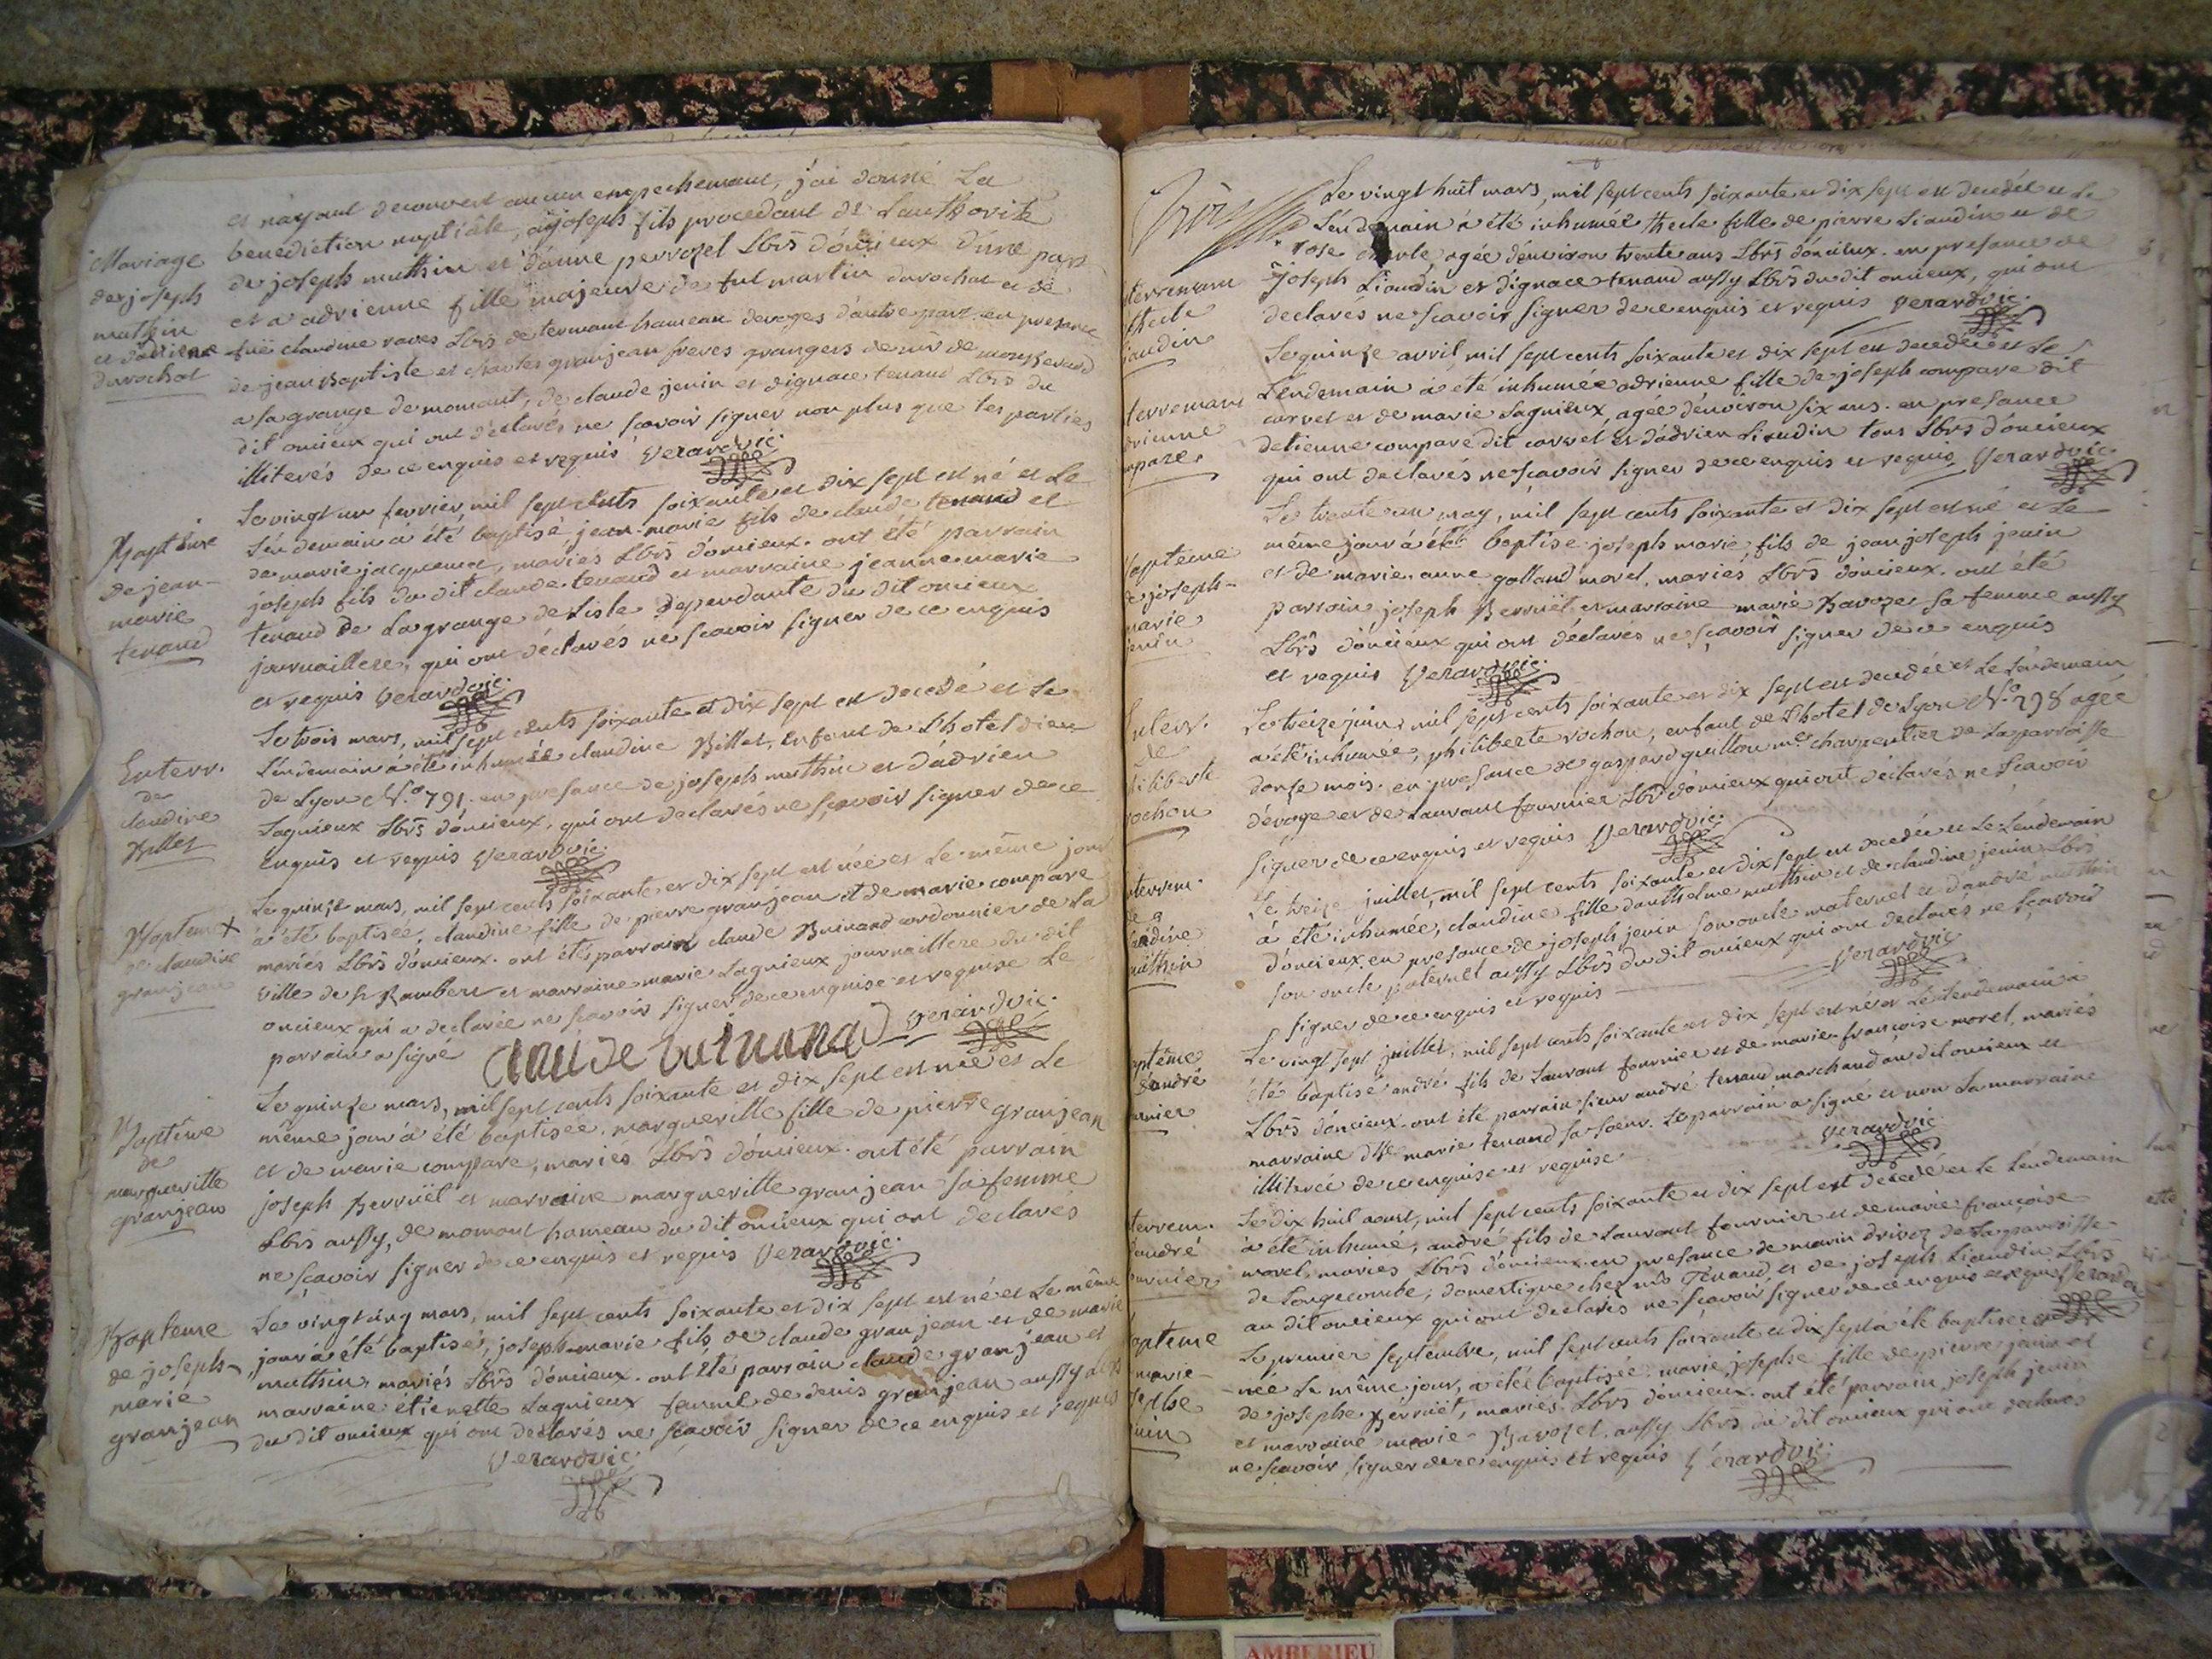 et n'ayant decouvert aucun empechement, j'ai donné la
benediction nuptiale, a joseph fils procedant de l'authorite
de joseph muthin et d'anne perrozel Lbrs d'oncieux d'une part
et a adrienne fille majeure de fut martin durochat et de
fuë claudine raves Lbrs de termant hameau devoges d'autre part en presance
de jean Baptiste et charles granjean freres grangers de mr de montferrand
a la grange de momont, de claude jenin et d'ignace tenand Lbrs du
dit oncieux qui ont déclarés ne scavoir signer non plus que les parties
illiterés de ce enquis et requis Verard vic.
Mariage
de joseph
muthin
et d'adriene
durochat
Le vingt un fevrier, mil sept cents soixante et dix sept est né et le
lendemain a été baptisé, jean-marie fils de claude tenand et
de marie jacquemet, mariés Lbrs d'oncieux. ont été parrain
joseph fils du dit claude tenand et marraine jeanne marie
tenand de la grange de Lisle dependante du dit oncieux
journailliere, qui ont déclarés ne scavoir signer de ce enquis
et requis Verard vic.
Baptême
de jean-
marie
tenand
Le trois mars, mil sept cents soixante et dix sept est decedé et le
lendemain a été inhumée claudine Billet, enfant de l'hotel dieu
de Lyon N.o 791. en presance de joseph muthin et d'adrien
Lagnieux Lbrs d'oncieux, qui ont declarés ne scavoir signer de ce
enquis et requis Verard vic.
Enterr.
de
claudine
Billet
Le quinze mars, mil sept cents soixante et dix sept est née et le même jour
a été baptisée, claudine fille de pierre granjean et de marie compare
mariés Lbrs d'oncieux. ont été parrain claude Buinand cordonnier de la
ville de St Rambert et marraine marie Lagnieux journailliere du dit
oncieux qui a declarée ne scavoir signer de ce enquise et requise le
parrain a signé claude buinand Verard vic.
Baptême X
de claudine
granjean
Le quinze mars, mil sept cents soixante et dix sept est née et le
même jour a été baptisée, margueritte fille de pierre granjean
et de marie compare, mariés Lbrs d'oncieux. ont été parrain
joseph Berruët et marraine margueritte granjean sa femme
Lbrs aussy, de momont hameau du dit oncieux qui ont declarés
ne scavoir signer de ce enquis et requis Verard vic.
Baptême
de
margueritte
granjean
Le vingt cinq mars, mil sept cents soixante et dix sept est né et le même
jour a été baptisé, joseph-marie fils de claude granjean et de marie
muthin, mariés Lbrs d'oncieux. ont été parrain claude granjean et
marraine etienette Lagnieux femme de denis granjean aussy Lbrs
du dit oncieux qui ont declarés ne scavoir signer de ce enquis et requis
Verard vic.
Bapteme
de joseph-
marie
granjean
Le vingt huit mars, mil sept cents soixante et dix sept est decedée et le
lendemain a été inhumée thecle fille de pierre Liaudin et de
rose agée d'environ trente ans Lbrs d'oncieux. en presance de
joseph Liaudin et d'ignace tenand aussy Lbrs du dit oncieux, qui ont
declarés ne scavoir signer de ce enquis et requis Verard vic.
terrement
thecle
iaudin
Le quinze avril, mil sept cents soixante et dix sept est decedée et le
Lendemain a été inhumée adrienne fille de joseph compare dit
carret et de marie Lagnieux, agée d'environ six ans. en presance
detienne compare dit carret et d'adrien Liaudin tous Lbrs d'oncieux
qui ont declarés ne scavoir signer de ce enquis et requis Verard vic.
terrement
drienne
mpare.
Le trente un may, mil sept cents soixante et dix sept est né et le
même jour a été baptise joseph marie, fils de jean joseph jenin
et de marie anne golland morel, mariés Lbrs d'oncieux. ont été
parrain joseph Berruët et marraine marie Bavozet sa femme aussy
Lbrs d'oncieux qui ont déclarés ne scavoir signer de ce enquis
et requis Verard vic.
aptême
de joseph-
marie
jenin
Le treize juin, mil sept cents soixante et dix sept est decedée et le lendemain
a été inhumée, philiberte rochon, enfant de l'hotel de Lyon N.o 298 agée
donze mois. en presance de gaspard guillon me charpentier de la parroisse
dévoge et de Laurant fournier Lbr d'oncieux qui ont déclarés ne scavoir
signer de ce enquis et requis Verard vic.
nterr.
de
iliberte
ochon
Le treize juillet, mil sept cents soixante et dix sept est decedée et le lendemain
a été inhumée, claudine fille danthelme muthin et de claudine jenin Lbrs
d'oncieux. en presance de joseph jenin son oncle maternel et d'andré muthin
son oncle paternel aussy Lbrs du dit oncieux qui ont declarés ne scavoir
signer de ce enquis et requis Verard vic.
nterrem.
de
laudine
muthin
Le vingt sept juillet, mil sept cents soixante et dix sept est né et le lendemain a
été baptisé andré fils de Laurant fournier et de marie françoise morel, mariés
Lbrs d'oncieux. ont été parrain sieur andré tenand marchand au dit oncieux et
marraine dlle marie tenand sa soeur. Le parrain a signé et non la marraine
illiterée de ce enquise et requise Verard vic.
aptême
d'andré
urnier
Le dix huit aoust, mil sept cents soixante et dix sept est decedé et le lendemain
a été inhumé, andré fils de Laurant fournier et de marie françoise
morel mariés Lbrs d'oncieux. en presance de marin drivoz de la parroisse
de Longecombe, domestique chez mr Tenand, et de joseph Liaudin Lbrs
au dit oncieux qui ont declarés ne scavoir signer de ce enquis et requis Verard vic
terrem.
d'andré
ournier
Le premier septembre, mil sept cents soixante et dix sept a été baptisée
née le même jour, a été baptisée, marie josephe fille de pierre jenin et
de josephe Berruët, mariés Lbrs d'oncieux. ont été parrain joseph jenin
et marraine marie Bavozet aussy Lbrs du dit oncieux qui ont declarés
ne scavoir signer de ce enquis et requis Verard vic.
apteme
marie-
sephe
nin
AMBERIEU